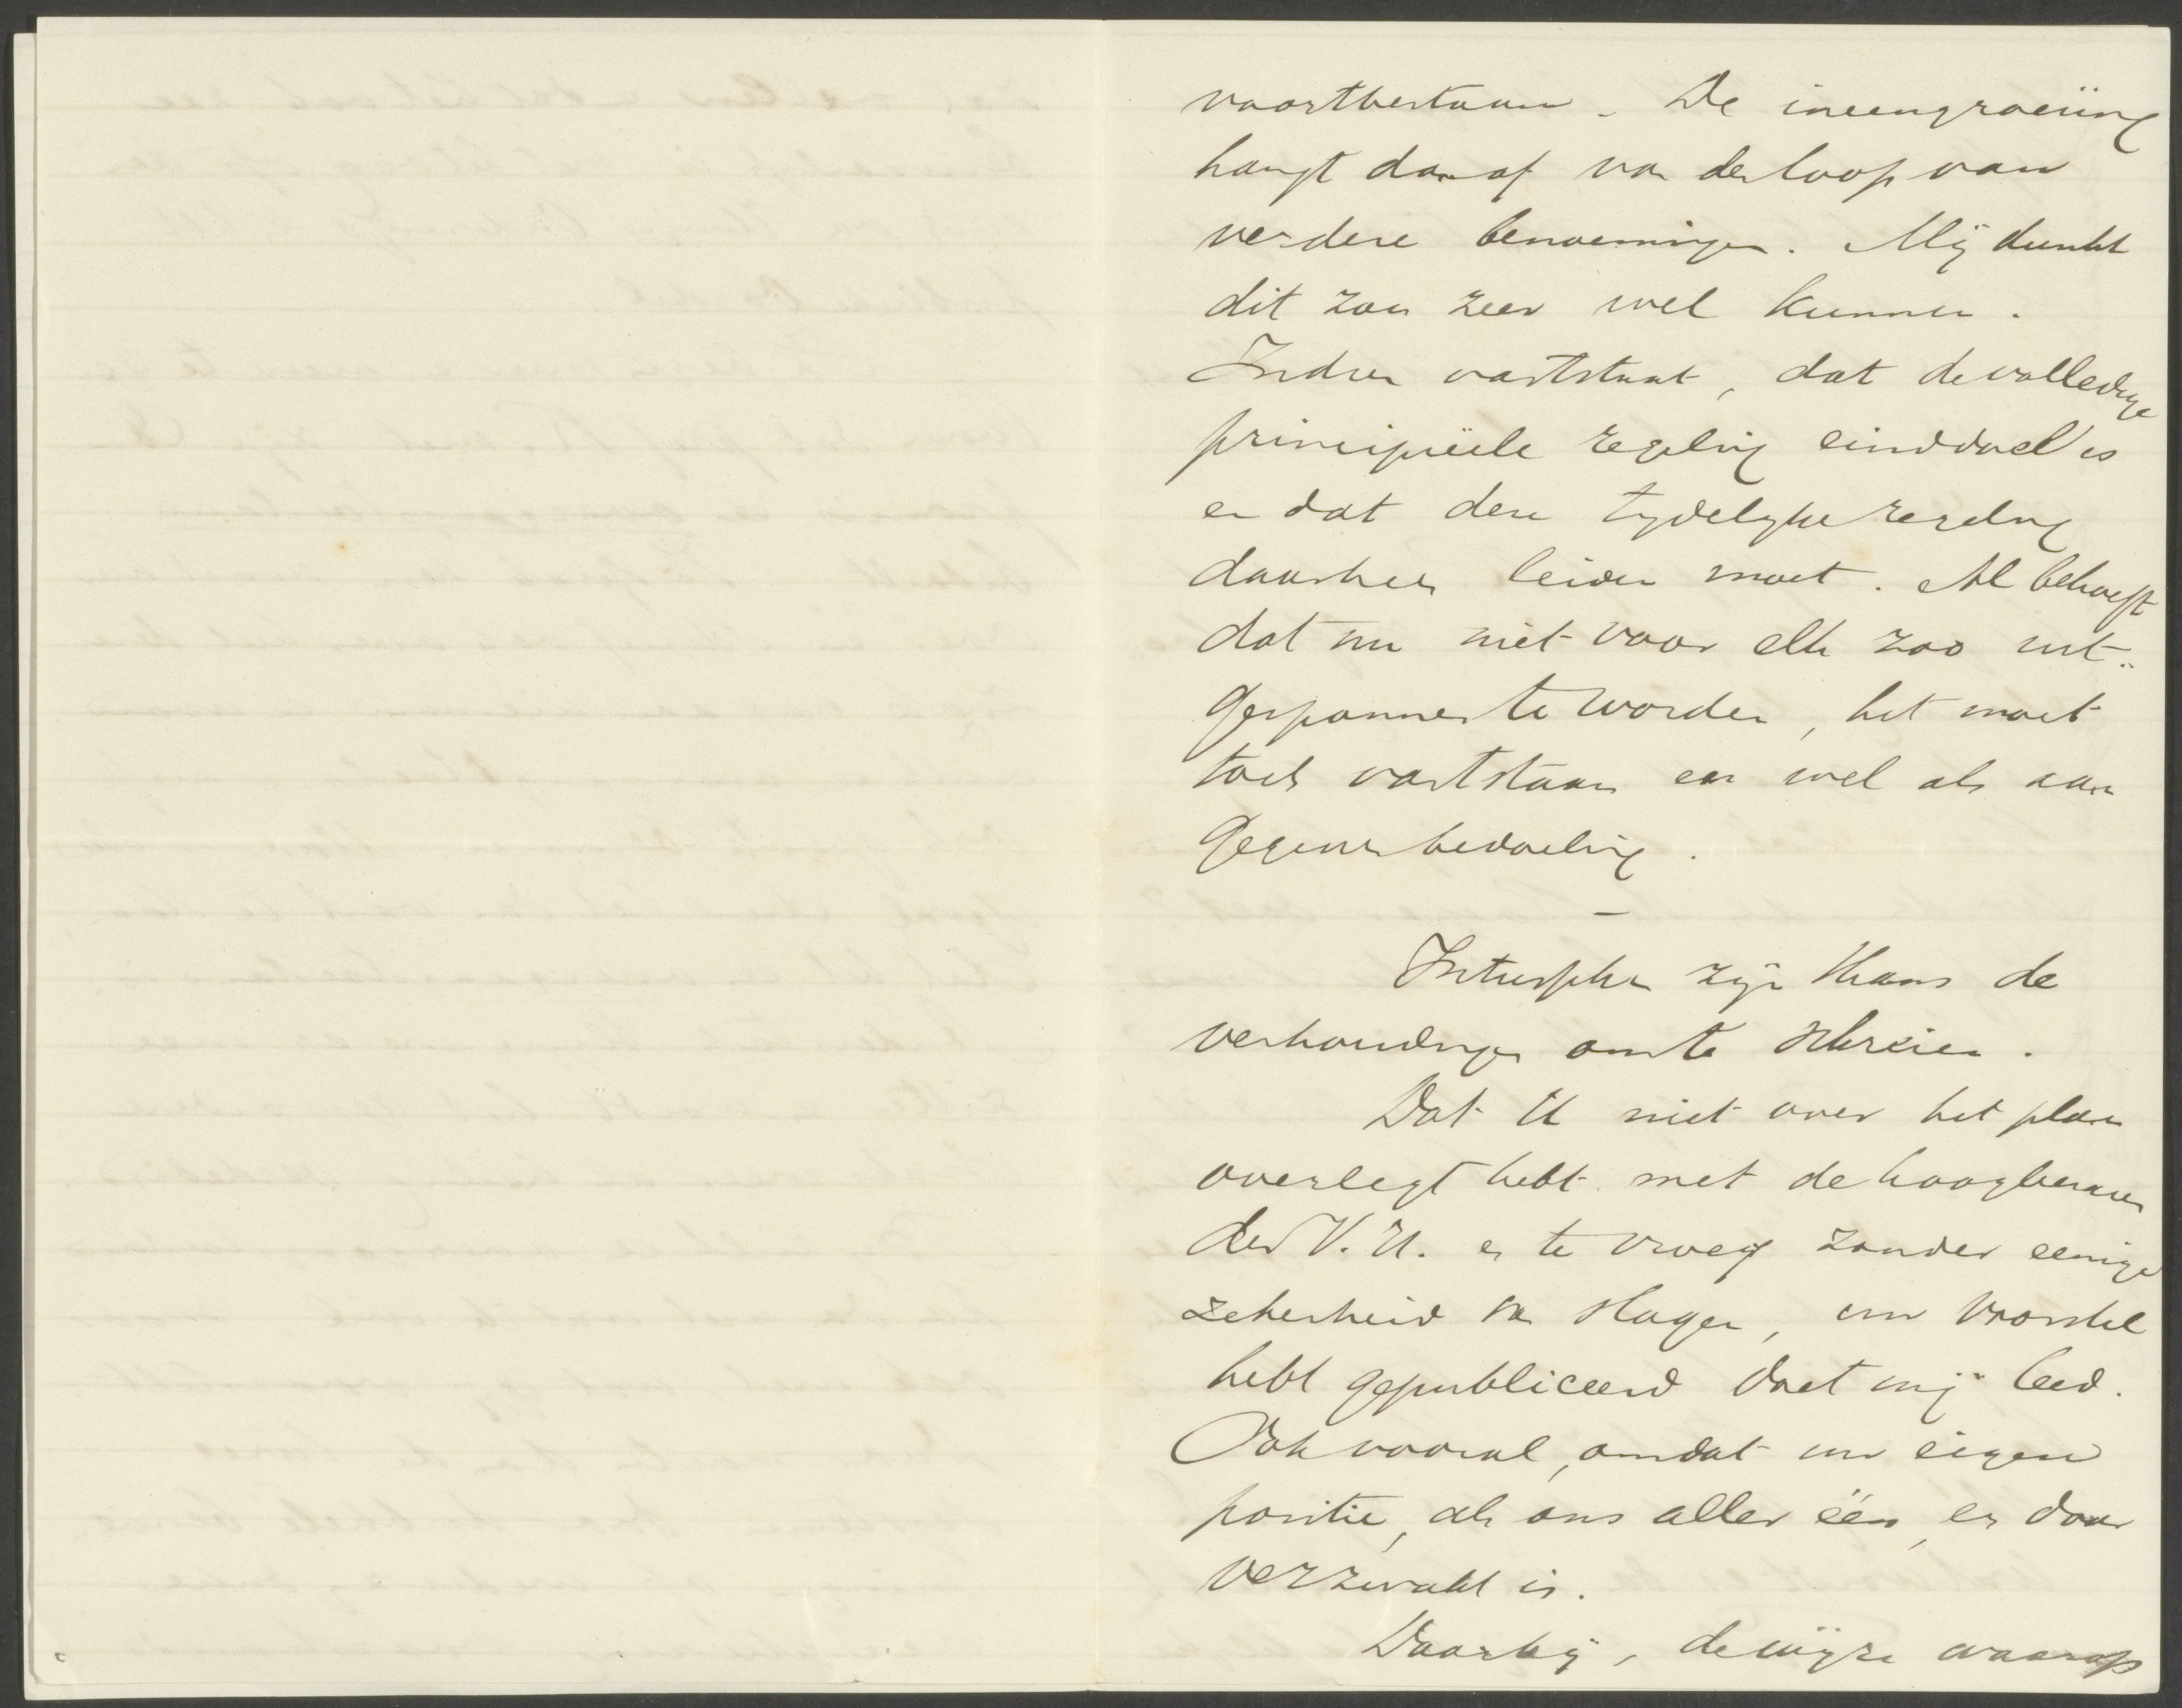 voortbestaan. De ineengroeiing
hangt dan af van den loop van
verdere benoemingen. Mij dunkt
dit zou zeer wel kunnen.
Indien vaststaat, dat de volledige
principiëele regeling einddoel is
en dat deze tijdelijke regeling
daarheen leiden moet. Al behoeft
dat nu niet voor elk zoo uit-
gesponnen te worden, het moet
toch vaststaan en wel als aan
gegeven bedoeling.
—
Intusschen zijn thans de
verhoudingen om te schreien.
Dat U niet over het plan
overlegt hebt met de hoogleeraren
der V.U. en te vroeg zonder eenige
zekerheid van slagen, uw voorstel
hebt gepubliceerd doet mij leed.
Ook vooral, omdat uw eigen
positie, als ons aller één, er door
verzwakt is.
Daarbij, de wijze waarop